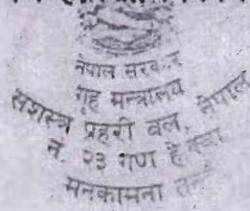 नेपाल सरकार
गृह मन्त्रालय
सशस्त्र प्रहरी बल, नेपाल
नं. २३ गण हे.क्वा.
मनकामना